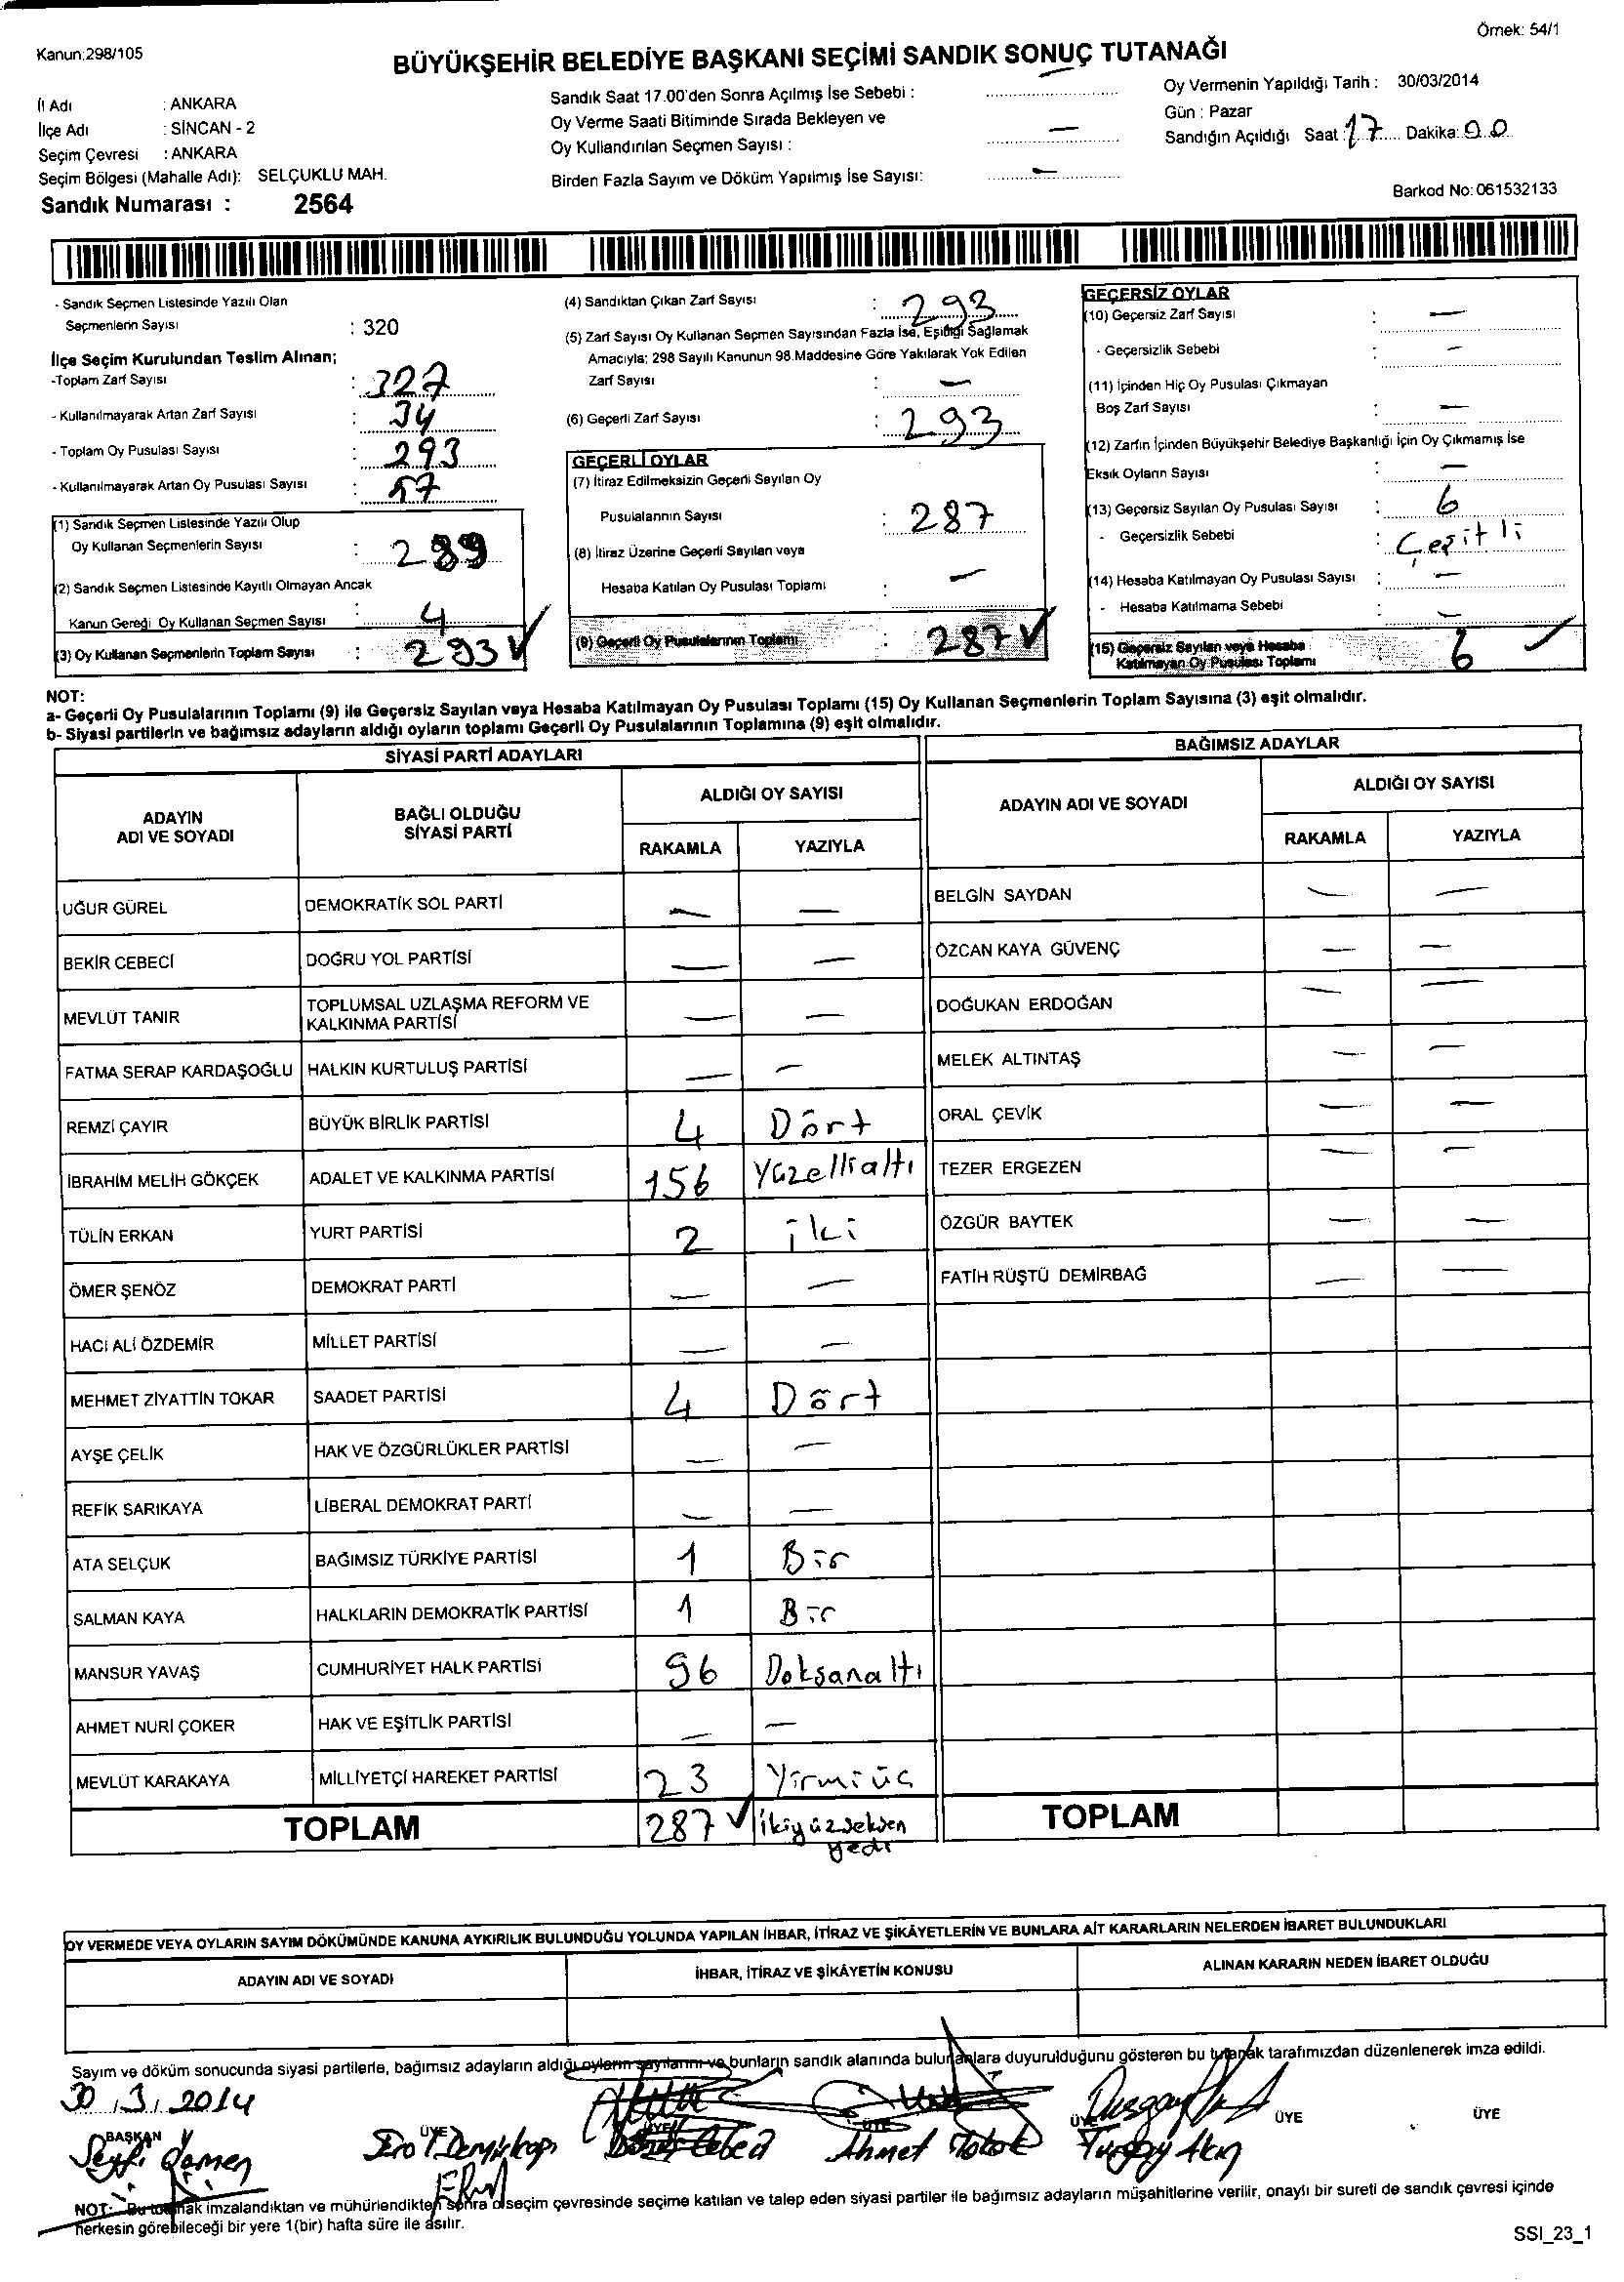 Örnek: 54/1
Kanun:298/105
BÜYÜKŞEHİR BELEDİYE BAŞKANI SEÇİMİ SANDIK SONUÇ TUTANAĞI
İl Adı : ANKARA
İlçe Adı : SİNCAN - 2
Seçim Çevresi : ANKARA
Seçim Bölgesi (Mahalle Adı): SELÇUKLU MAH.
Sandık Numarası : 2564
Sandık Saat 17.00'den Sonra Açılmış İse Sebebi : —
Oy Verme Saati Bitiminde Sırada Bekleyen ve
Oy Kullandırılan Seçmen Sayısı : —
Birden Fazla Sayım ve Döküm Yapılmış İse Sayısı: —
Oy Vermenin Yapıldığı Tarih : 30/03/2014
Gün : Pazar
Sandığın Açıldığı Saat : 17 Dakika: 00
Barkod No: 061532133
- Sandık Seçmen Listesinde Yazılı Olan
Seçmenlerin Sayısı : 320
İlçe Seçim Kurulundan Teslim Alınan;
-Toplam Zarf Sayısı : 327
- Kullanılmayarak Artan Zarf Sayısı : 34
- Toplam Oy Pusulası Sayısı : 293
- Kullanılmayarak Artan Oy Pusulası Sayısı : 57
(1) Sandık Seçmen Listesinde Yazılı Olup
Oy Kullanan Seçmenlerin Sayısı : 289
(2) Sandık Seçmen Listesinde Kayıtlı Olmayan Ancak
Kanun Gereği Oy Kullanan Seçmen Sayısı : 4
(3) Oy Kullanan Seçmenlerin Toplam Sayısı : 293 ✓
(4) Sandıktan Çıkan Zarf Sayısı : 293
(5) Zarf Sayısı Oy Kullanan Seçmen Sayısından Fazla İse, Eşitliği Sağlamak
Amacıyla; 298 Sayılı Kanunun 98.Maddesine Göre Yakılarak Yok Edilen
Zarf Sayısı : —
(6) Geçerli Zarf Sayısı : 293
GEÇERLİ OYLAR
(7) İtiraz Edilmeksizin Geçerli Sayılan Oy
Pusulalarının Sayısı : 287
(8) İtiraz Üzerine Geçerli Sayılan veya
Hesaba Katılan Oy Pusulası Toplamı : —
(9) Geçerli Oy Pusulalarının Toplamı : 287 ✓
GEÇERSİZ OYLAR
(10) Geçersiz Zarf Sayısı : —
- Geçersizlik Sebebi : —
(11) İçinden Hiç Oy Pusulası Çıkmayan
Boş Zarf Sayısı : —
(12) Zarfın İçinden Büyükşehir Belediye Başkanlığı İçin Oy Çıkmamış İse
Eksik Oyların Sayısı : —
(13) Geçersiz Sayılan Oy Pusulası Sayısı : 6
- Geçersizlik Sebebi : Çeşitli
(14) Hesaba Katılmayan Oy Pusulası Sayısı : —
- Hesaba Katılmama Sebebi : —
(15) Geçersiz Sayılan veya Hesaba
Katılmayan Oy Pusulası Toplamı 6 ✓
NOT:
a- Geçerli Oy Pusulalarının Toplamı (9) ile Geçersiz Sayılan veya Hesaba Katılmayan Oy Pusulası Toplamı (15) Oy Kullanan Seçmenlerin Toplam Sayısına (3) eşit olmalıdır.
b- Siyasi partilerin ve bağımsız adayların aldığı oyların toplamı Geçerli Oy Pusulalarının Toplamına (9) eşit olmalıdır.
SİYASİ PARTİ ADAYLARI
ADAYIN ADI VE SOYADI
BAĞLI OLDUĞU SİYASİ PARTİ
ALDIĞI OY SAYISI
RAKAMLA YAZIYLA
UĞUR GÜREL DEMOKRATİK SOL PARTİ — —
BEKİR CEBECİ DOĞRU YOL PARTİSİ — —
MEVLÜT TANIR TOPLUMSAL UZLAŞMA REFORM VE KALKINMA PARTİSİ — —
FATMA SERAP KARDAŞOĞLU HALKIN KURTULUŞ PARTİSİ — —
REMZİ ÇAYIR BÜYÜK BİRLİK PARTİSİ 4 Dört
İBRAHİM MELİH GÖKÇEK ADALET VE KALKINMA PARTİSİ 156 Yüzellialtı
TÜLİN ERKAN YURT PARTİSİ 2 iki
ÖMER ŞENÖZ DEMOKRAT PARTİ — —
HACI ALİ ÖZDEMİR MİLLET PARTİSİ — —
MEHMET ZİYATTİN TOKAR SAADET PARTİSİ 4 Dört
AYŞE ÇELİK HAK VE ÖZGÜRLÜKLER PARTİSİ — —
REFİK SARIKAYA LİBERAL DEMOKRAT PARTİ — —
ATA SELÇUK BAĞIMSIZ TÜRKİYE PARTİSİ 1 Bir
SALMAN KAYA HALKLARIN DEMOKRATİK PARTİSİ 1 Bir
MANSUR YAVAŞ CUMHURİYET HALK PARTİSİ 96 Doksanaltı
AHMET NURİ ÇOKER HAK VE EŞİTLİK PARTİSİ — —
MEVLÜT KARAKAYA MİLLİYETÇİ HAREKET PARTİSİ 23 Yirmiüç
TOPLAM 287 ✓ ikiyüzseksen
yedi
BAĞIMSIZ ADAYLAR
ADAYIN ADI VE SOYADI
ALDIĞI OY SAYISI
RAKAMLA YAZIYLA
BELGİN SAYDAN — —
ÖZCAN KAYA GÜVENÇ — —
DOĞUKAN ERDOĞAN — —
MELEK ALTINTAŞ — —
ORAL ÇEVİK — —
TEZER ERGEZEN — —
ÖZGÜR BAYTEK — —
FATİH RÜŞTÜ DEMİRBAĞ — —
TOPLAM
OY VERMEDE VEYA OYLARIN SAYIM DÖKÜMÜNDE KANUNA AYKIRILIK BULUNDUĞU YOLUNDA YAPILAN İHBAR, İTİRAZ VE ŞİKÂYETLERİN VE BUNLARA AİT KARARLARIN NELERDEN İBARET BULUNDUKLARI
ADAYIN ADI VE SOYADI İHBAR, İTİRAZ VE ŞİKÂYETİN KONUSU ALINAN KARARIN NEDEN İBARET OLDUĞU
Sayım ve döküm sonucunda siyasi partilerle, bağımsız adayların aldığı oyların sayılarını ve bunların sandık alanında bulunanlara duyurulduğunu gösteren bu tutanak tarafımızdan düzenlenerek imza edildi.
30 / 3 / 2014
BAŞKAN ÜYE ÜYE ÜYE ÜYE ÜYE ÜYE
Ahmet Turgay
NOT: Bu tutanak imzalandıktan ve mühürlendikten sonra o seçim çevresinde seçime katılan ve talep eden siyasi partiler ile bağımsız adayların müşahitlerine verilir, onaylı bir sureti de sandık çevresi içinde
herkesin görebileceği bir yere 1(bir) hafta süre ile asılır.
SSI_23_1